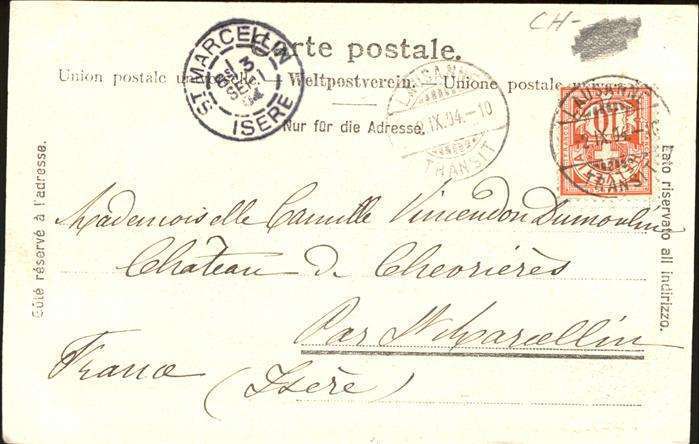 CH-
Carte postale.
Union postale universelle. — Weltpostverein. — Unione postale
Nur für die Adresse.
ST MARCELLIN
13
SEPT
ISÈRE
LAUSANNE
IX.04.-10
TRANSIT
LAUSANNE
2.IX.04
TRANSIT
10
Côté réservé à l'adresse.
Lato riservato all indirizzo.
Mademoiselle Camille Vincendon Dumoulin
Château de Chevrières
Par St Marcellin
France (Isère)